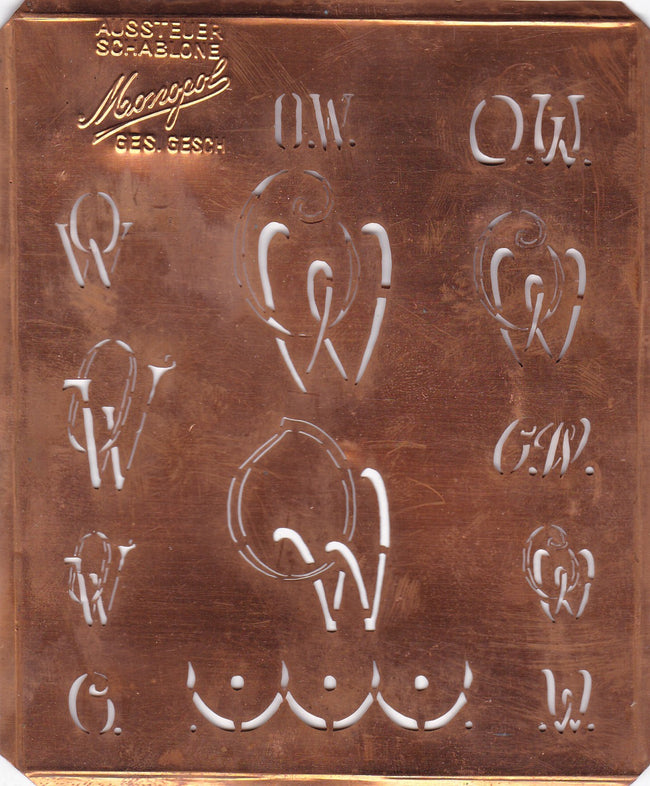 AUSSTEUER
SCHABLONE
Monopol
GES. GESCH
O.W.
O.W.
OW
OW
OW
OW
O.W.
OW
OW
OW
O.
W.